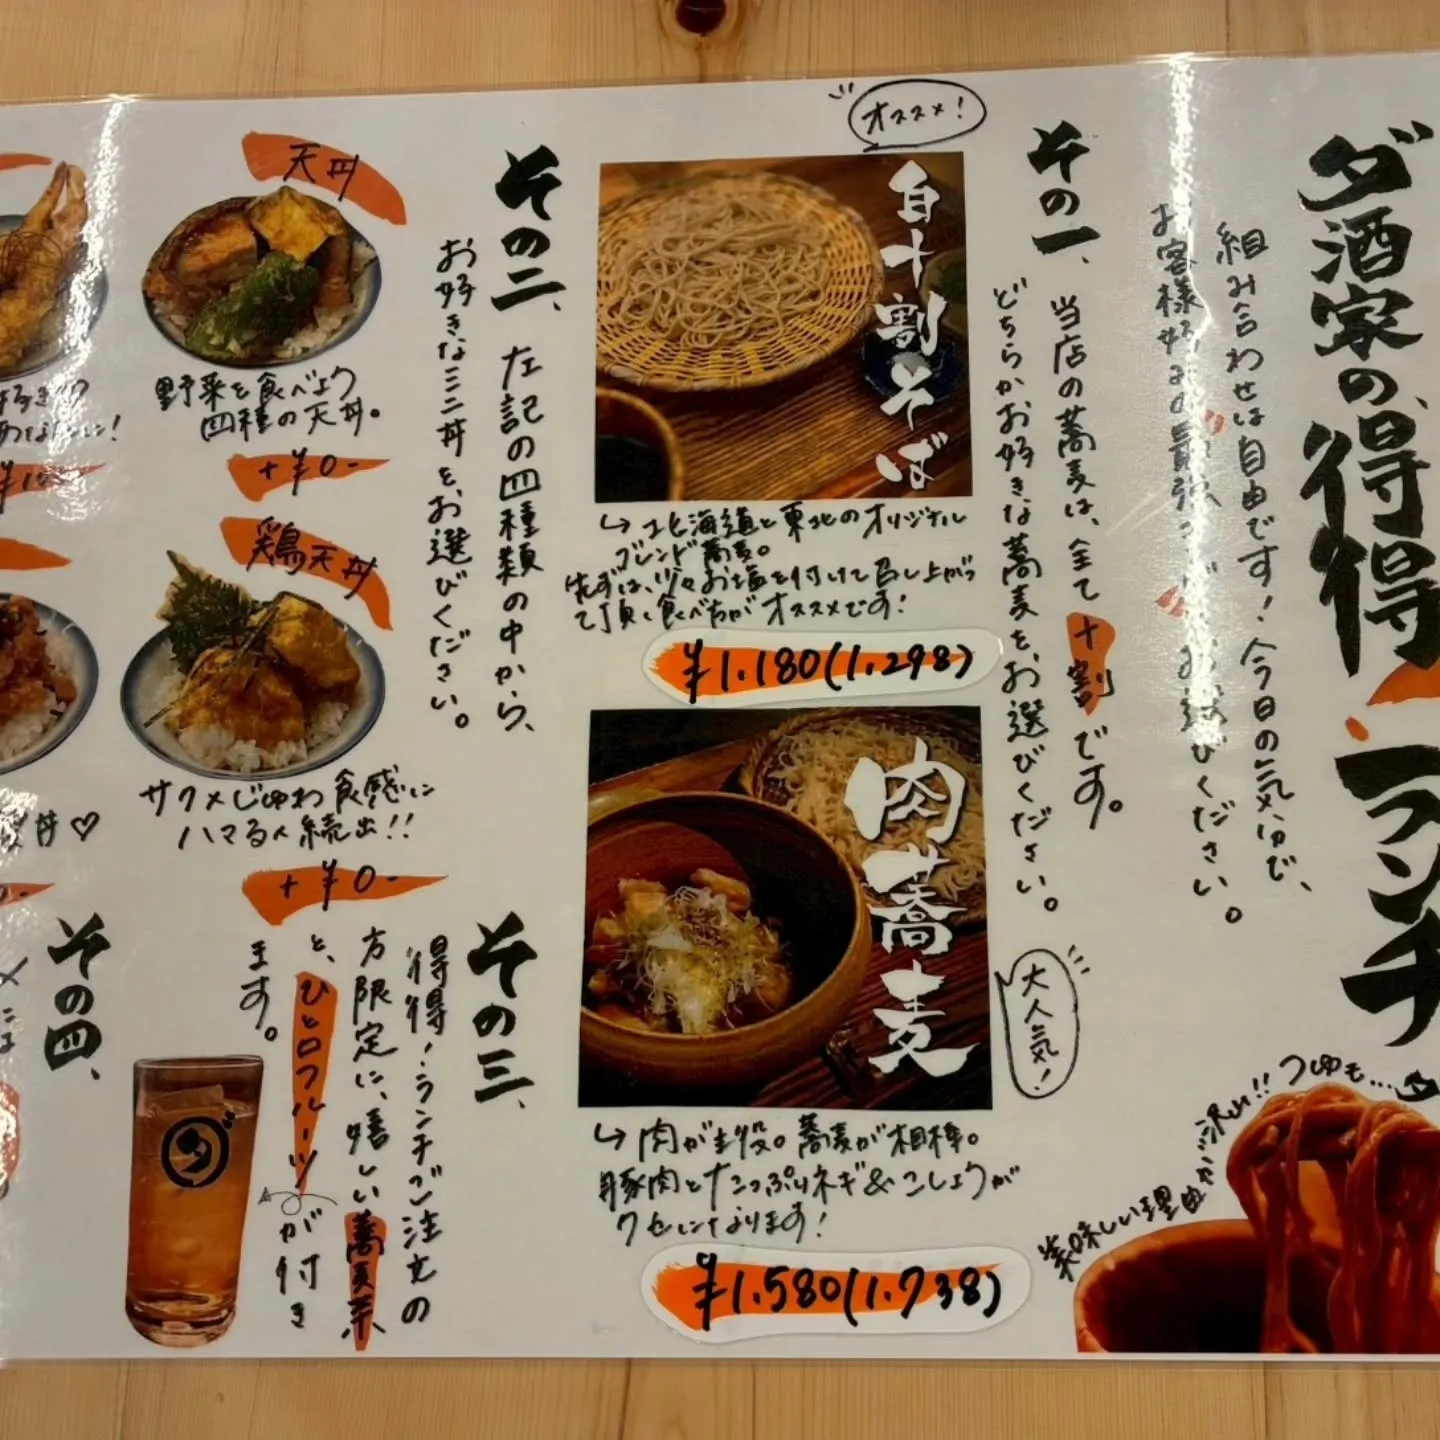 ダ酒家の得得ランチ
組み合わせは自由です！今日の気分で、
お客様好みの
お選びください。
つゆも…
美味しい理由が沢山!!
その一、
当店の蕎麦は、全て十割です。
どちらかお好きな蕎麦を、お選びください。
オススメ！
白十割そば
→北海道と東北のオリジナル
ブレンド蕎麦。
先ずは、少々お塩を付けて召し上がっ
て頂く食べ方がオススメです！
¥1.180(1.298)
大人気！
肉蕎麦
→肉が主役。蕎麦が相棒。
豚肉とたっぷりネギ&こしょうが
クセになります！
¥1.580(1.738)
その二、
左記の四種類の中から、
お好きなミニ丼を、お選びください。
天丼
野菜を食べよう
四種の天丼。
+¥0-
鶏天丼
サクメじゅわ食感に
ハマる人続出!!
+¥0-
丼♡
その三、
得得！ランチご注文の
方限定に、嬉しい蕎麦茶
と、ひと口フルーツが付き
ます。
ダ
その四、